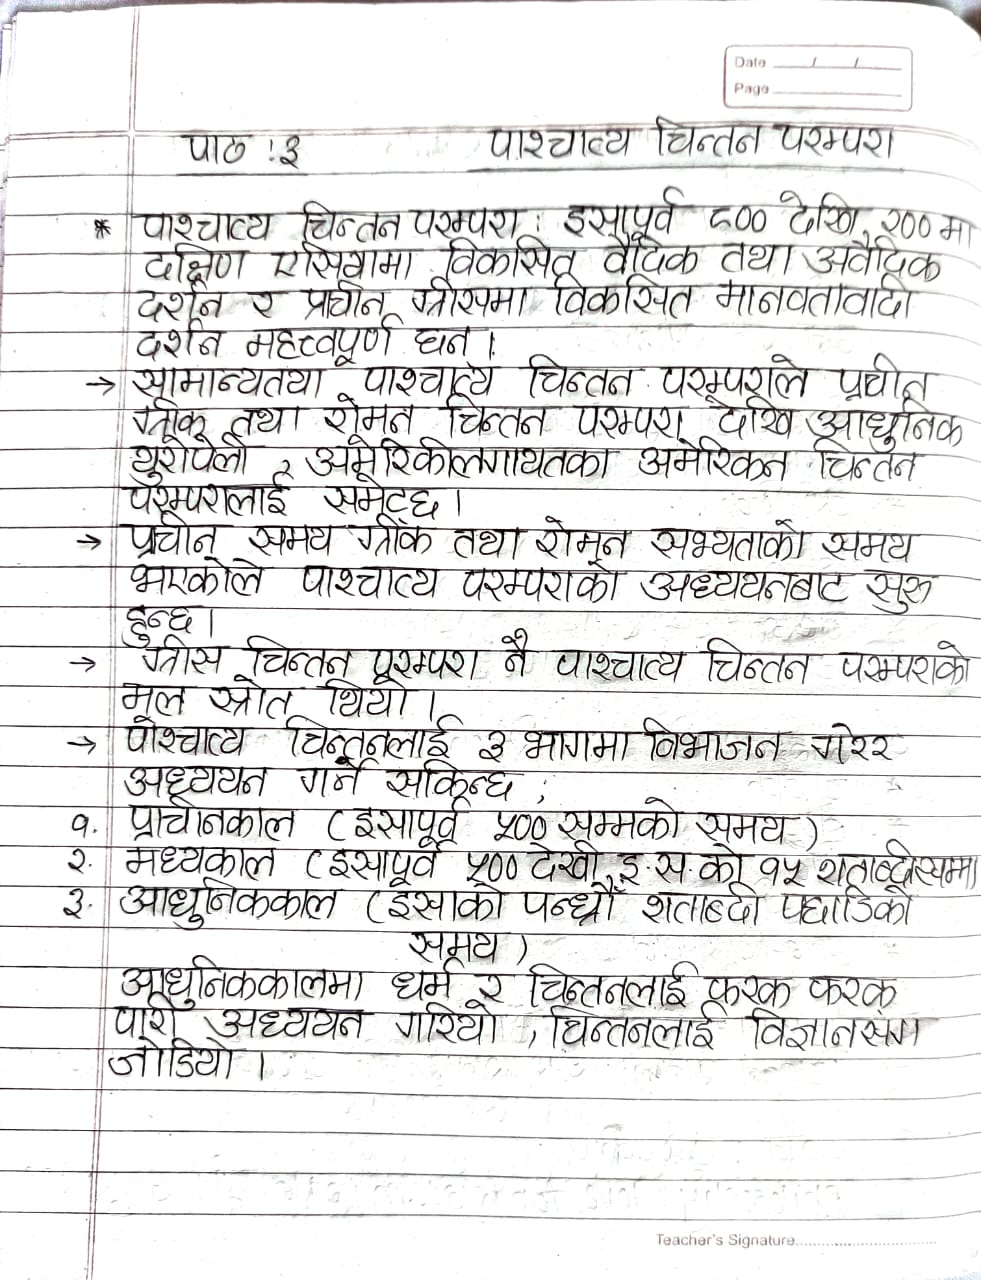 Date / /
Page
पाठ : ३ पाश्चात्य चिन्तन परम्परा
* पाश्चात्य चिन्तन परम्परा : इसापूर्व ८०० देखि २०० मा
दक्षिण एसियामा विकसित वैदिक तथा अवैदिक
दर्शन र प्राचीन ग्रीसमा विकसित मानवतावादी
दर्शन महत्त्वपूर्ण छन् ।
→ सामान्यतया पाश्चात्य चिन्तन परम्पराले प्राचीन
ग्रीक तथा रोमन चिन्तन परम्परा देखि आधुनिक
युरोपेली र अमेरिकीलगायतका अमेरिकन चिन्तन
परम्परालाई समेट्छ ।
→ प्राचीन समय ग्रीक तथा रोमन सभ्यताको समय
भएकोले पाश्चात्य परम्पराको अध्ययनबाट सुरु
हुन्छ ।
→ ग्रीस चिन्तन परम्परा नै पाश्चात्य चिन्तन परम्पराको
मूल स्रोत थियो ।
→ पाश्चात्य चिन्तनलाई ३ भागमा विभाजन गरेर
अध्ययन गर्न सकिन्छ ;
१. प्राचीनकाल (इसापूर्व ५०० सम्मको समय)
२. मध्यकाल (इसापूर्व ५०० देखी इ.स. को १५ शताब्दीसम्म)
३. आधुनिककाल (इसाको पन्ध्रौँ शताब्दी पछाडिको
समय)
आधुनिककालमा धर्म र चिन्तनलाई फरक फरक
पारी अध्ययन गरियो , चिन्तनलाई विज्ञानसंग
जोडियो ।
Teacher's Signature